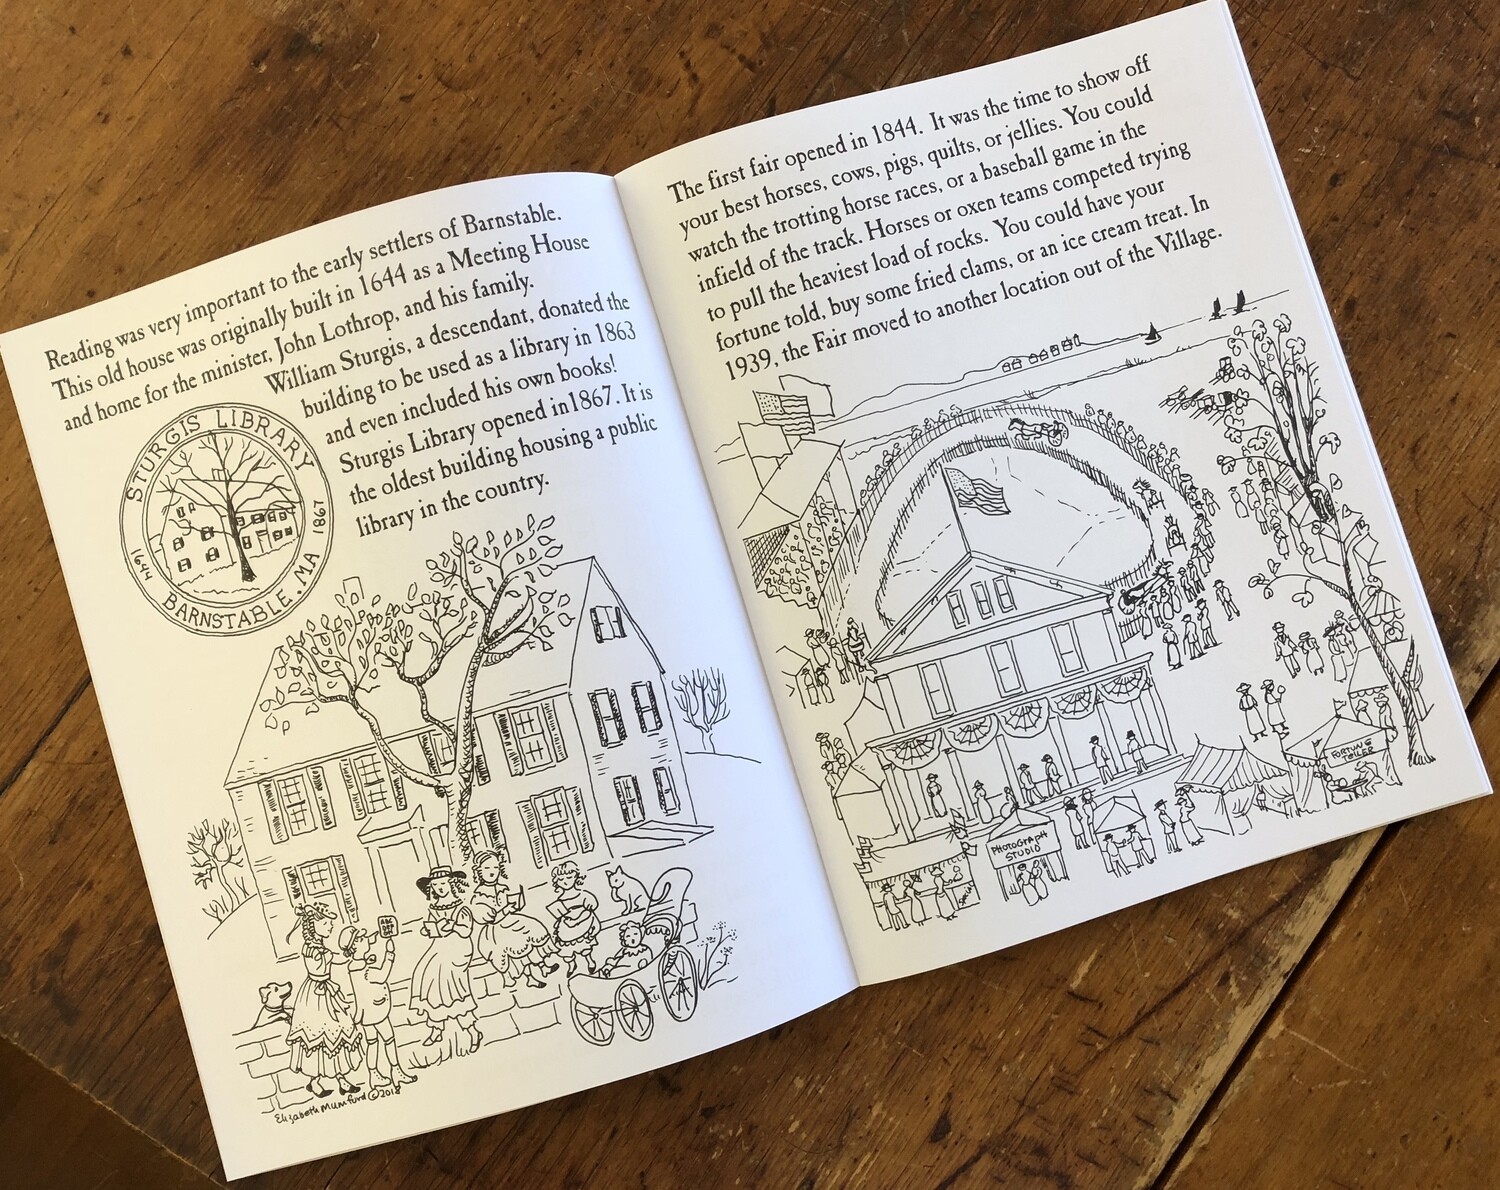 Reading was very important to the early settlers of Barnstable.
This old house was originally built in 1644 as a Meeting House
and home for the minister, John Lothrop, and his family.
William Sturgis, a descendant, donated the
building to be used as a library in 1863
and even included his own books!
Sturgis Library opened in1867. It is
the oldest building housing a public
library in the country.
STURGIS LIBRARY
1644
1867
BARNSTABLE, MA
ABC
Elizabeth Mumford © 2018
The first fair opened in 1844. It was the time to show off
your best horses, cows, pigs, quilts, or jellies. You could
watch the trotting horse races, or a baseball game in the
infield of the track. Horses or oxen teams competed trying
to pull the heaviest load of rocks. You could have your
fortune told, buy some fried clams, or an ice cream treat. In
1939, the Fair moved to another location out of the Village.
FORTUNE
TELLER
PHOTOGRAPH
STUDIO